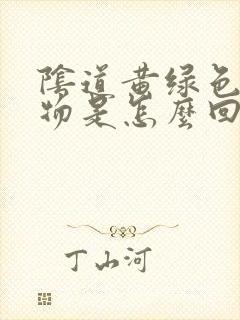 陰道黄绿色
物是怎麼回
丁山河